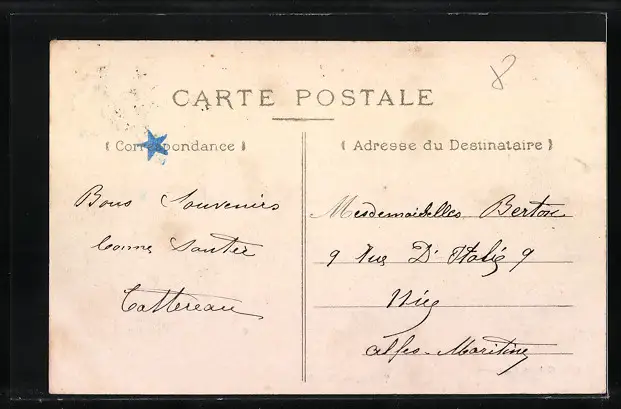 CARTE POSTALE
8
( Correspondance )
( Adresse du Destinataire )
Bons Souvenirs
bonne Santée
Mesdemoiselles Berton
9 Rue D'Italie 9
Nice
alpes-Maritime